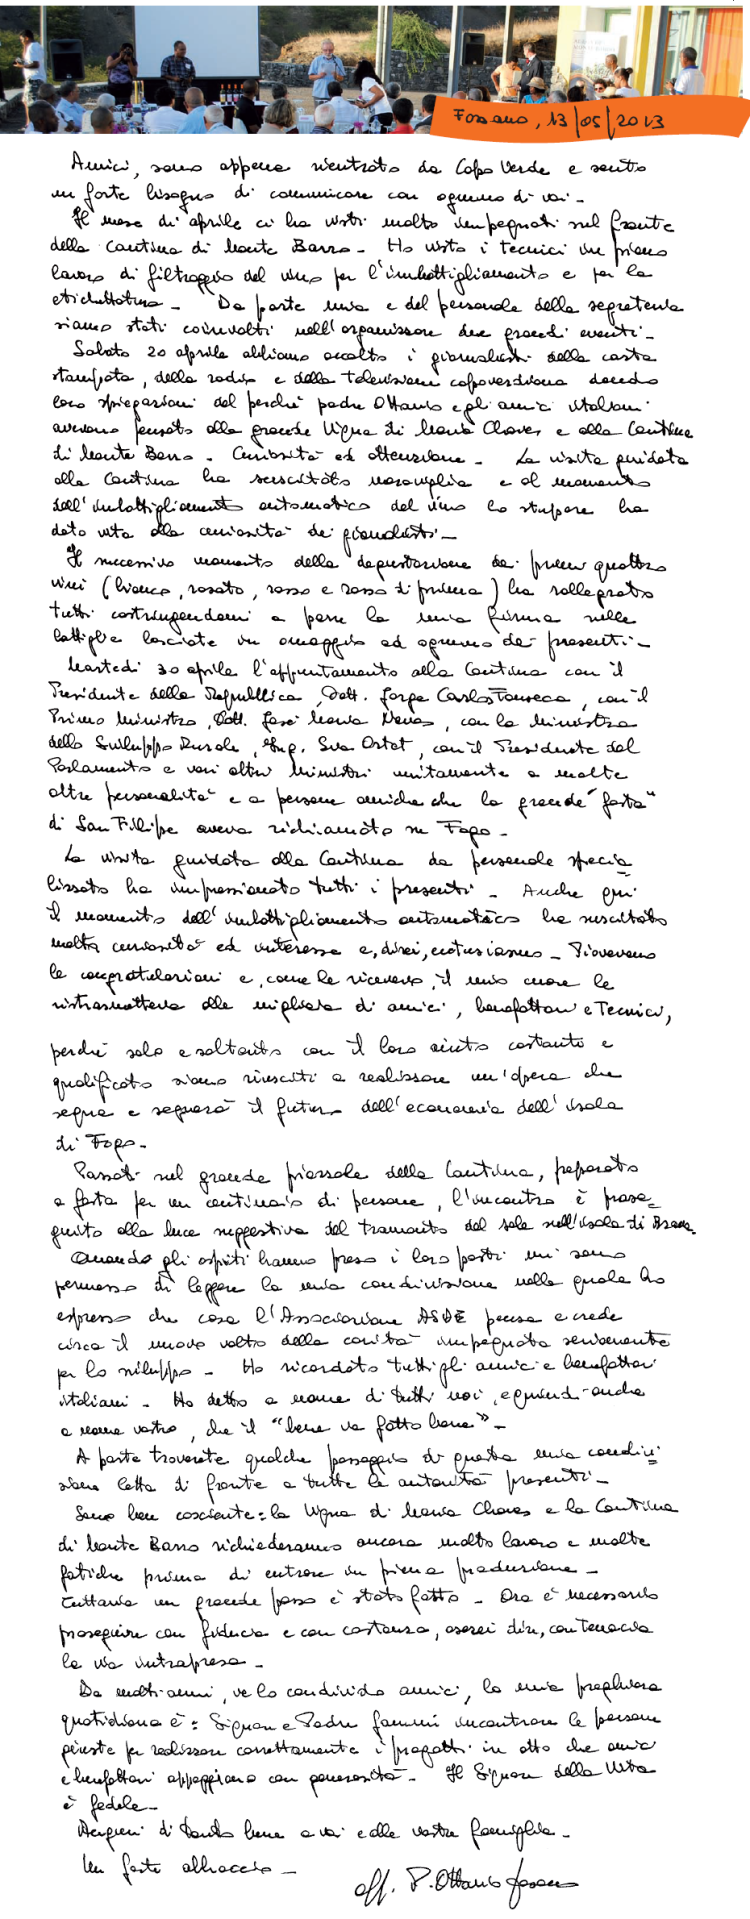 Fossano, 13/05/2013
Amici, sono appena rientrato da Capo Verde e sento
un forte bisogno di comunicare con ognuno di voi-
Il mese di aprile ci ha visti molto impegnati sul fronte
della Cantina di Monte Barro- Ho visto i tecnici in pieno
lavoro di filtraggio del vino per l'imbottigliamento e per la
etichettatura- Da parte mia e del personale della segreteria
siamo stati coinvolti nell'organizzare due grandi eventi-
Sabato 20 aprile abbiamo accolto i giornalisti della carta
stampata, della radio e della televisione capoverdiana dando
loro spiegazioni del perché padre Ottavio e gli amici italiani
avevano pensato alla grande Vigna di Maria Chaves e alla Cantina
di Monte Barro- Curiosità ed attenzione- La visita guidata
alla Cantina ha suscitato meraviglia e al momento
dell'imbottigliamento automatico del vino lo stupore ha
dato vita alla curiosità dei giornalisti-
Il successivo momento della degustazione dei primi quattro
vini (bianco, rosato, rosso e rosso di prima) ha rallegrato
tutti costringendomi a porre la mia firma sulle
bottiglie lasciate in omaggio ad ognuno dei presenti-
Martedì 30 aprile l'appuntamento alla Cantina con il
Presidente della Repubblica, Dott. Jorge Carlos Fonseca, con il
Primo Ministro, Dott. José Maria Neves, con la Ministra
dello Sviluppo Rurale, Ing. Eva Ortet, con il Presidente del
Parlamento e vari altri Ministri unitamente a molte
altre personalità e a persone amiche che la grande "festa"
di San Filipe aveva richiamato su Fogo-
La visita guidata alla Cantina da personale specia
lizzato ha impressionato tutti i presenti- Anche qui
il momento dell'imbottigliamento automatico ha suscitato
molta curiosità ed interesse e, direi, entusiasmo- Piovevano
le congratulazioni e, come le ricevevo, il mio cuore le
ritrasmetteva alle migliaia di amici, benefattori e Tecnici,
perché solo e soltanto con il loro aiuto costante e
qualificato siamo riusciti a realizzare un'opera che
segna e segnerà il futuro dell'economia dell'isola
di Fogo-
Passati sul grande piazzale della Cantina, preparato
a festa per un centinaio di persone, l'incontro è prose=
guito alla luce suggestiva del tramonto del sole sull'isola di Brava-
Quando gli ospiti hanno preso i loro posti mi sono
permesso di leggere la mia condivisione nella quale ho
espresso che cosa l'Associazione ASDE pensa e crede
circa il nuovo volto della carità impegnata seriamente
per lo sviluppo- Ho ricordato tutti gli amici e benefattori
italiani- Ho detto a nome di tutti noi, e quindi anche
a nome vostro, che il "bene va fatto bene"-
A parte troverete qualche passaggio di questa mia condivi=
sione letta di fronte a tutte le autorità presenti-
Sono ben cosciente: la Vigna di Maria Chaves e la Cantina
di Monte Barro richiederanno ancora molto lavoro e molte
fatiche prima di entrare in piena produzione-
Tuttavia un grande passo è stato fatto- Ora è necessario
proseguire con fiducia e con costanza, oserei dire, con tenacia
la via intrapresa-
Da molti anni, ve lo condivido amici, la mia preghiera
quotidiana è: Signore e Padre fammi incontrare le persone
giuste per realizzare correttamente i progetti in atto che amici
e benefattori appoggiano con generosità- Il Signore della Vita
è fedele-
Auguri di tanto bene a voi e alle vostre famiglie-
Un forte abbraccio-
aff. P. Ottavio Fasano